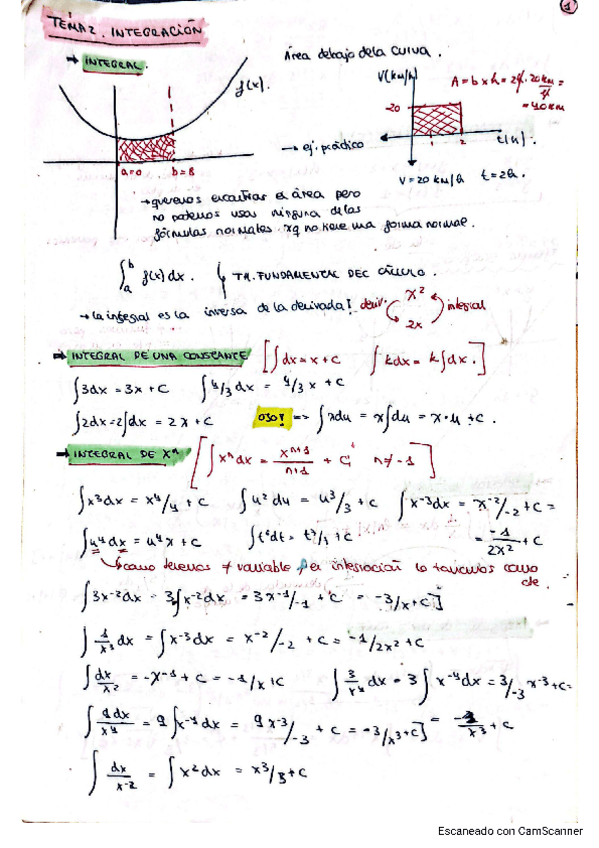 1
TEMA 2. INTEGRACIÓN
→ INTEGRAL.
Área debajo de la curva.
f(x).
a=0 b=8
→ ej. práctico
V(km/h)
20
1 2 t(h).
A = b x h = 2h · 20 km/h =
= 40 km
V = 20 km/h t = 2h.
→ queremos encontrar el área pero
no podemos usar ninguna de las
fórmulas normales. xq no tiene una forma normal.
∫ₐᵇ f(x) dx. ↳ TH. FUNDAMENTAL DEL CÁLCULO.
→ la integral es la inversa de la derivada! deriv. x² 2x integral
→ INTEGRAL DE UNA CONSTANTE [∫dx = x + C ∫kdx = k∫dx.]
∫3dx = 3x + C ∫4/3 dx = 4/3 x + C
∫2dx = 2∫dx = 2x + C OJO! => ∫xdu = x∫du = x·u + C.
→ INTEGRAL DE Xⁿ [∫xⁿdx = xⁿ⁺¹/n+1 + C, n≠-1]
∫x³dx = x⁴/4 + C ∫u²du = u³/3 + C ∫x⁻³dx = x⁻²/-2 + C =
∫u⁴dx = u⁴x + C ∫t⁶dt = t⁷/7 + C = -1/2x² + C
↳ como tenemos ≠ variable, en integración lo tomamos como
cte.
∫3x⁻²dx = 3∫x⁻²dx = 3x⁻¹/-1 + C = -3/x + C]
∫1/x³ dx = ∫x⁻³dx = x⁻²/-2 + C = -1/2x² + C
∫dx/x² = -x⁻¹ + C = -1/x + C ∫3/x⁴ dx = 3∫x⁻⁴dx = 3/-3 x⁻³ + C =
∫9dx/x⁴ = 9∫x⁻⁴dx = 9x⁻³/-3 + C = -3/x³ + C] = -1/x³ + C
∫dx/x⁻² = ∫x²dx = x³/3 + C
Escaneado con CamScanner